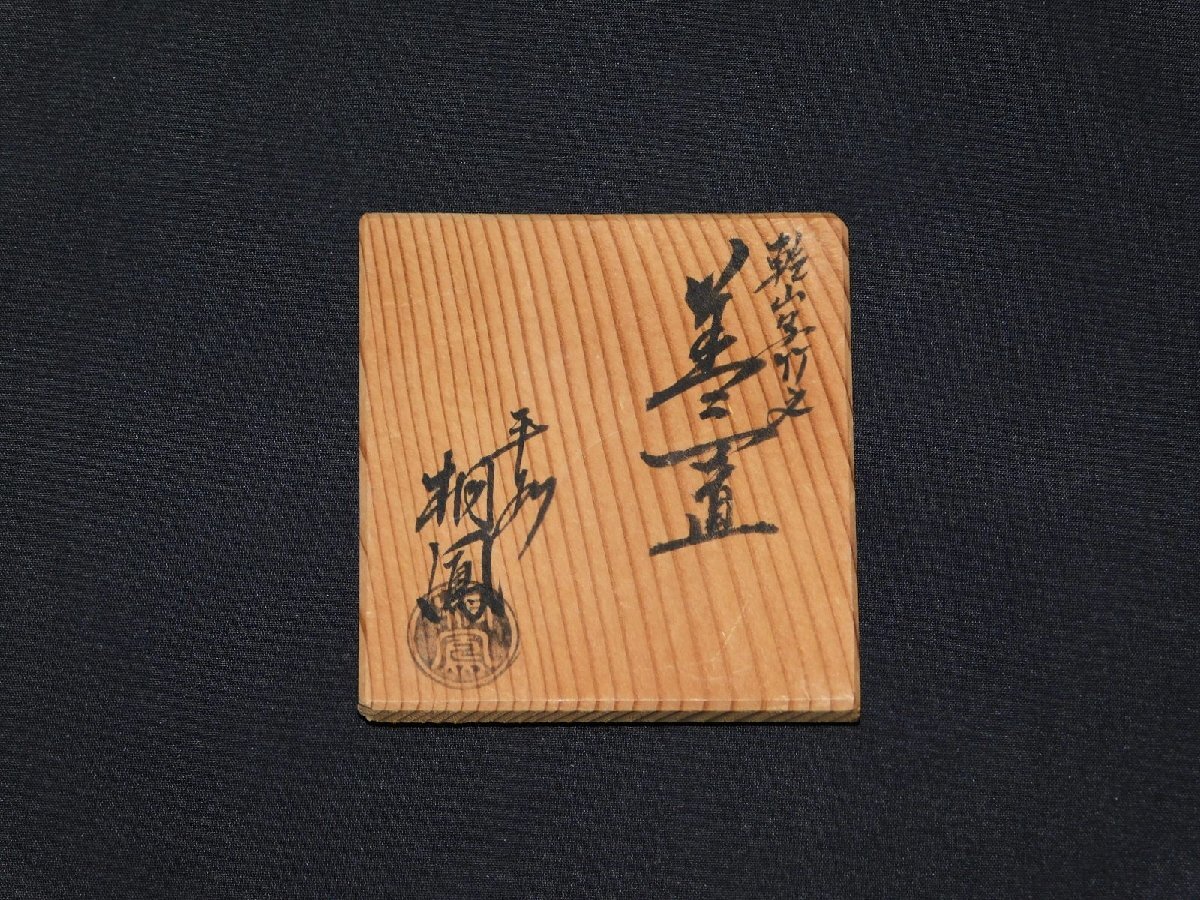 乾山写竹之
蓋置
平安
桐鳳